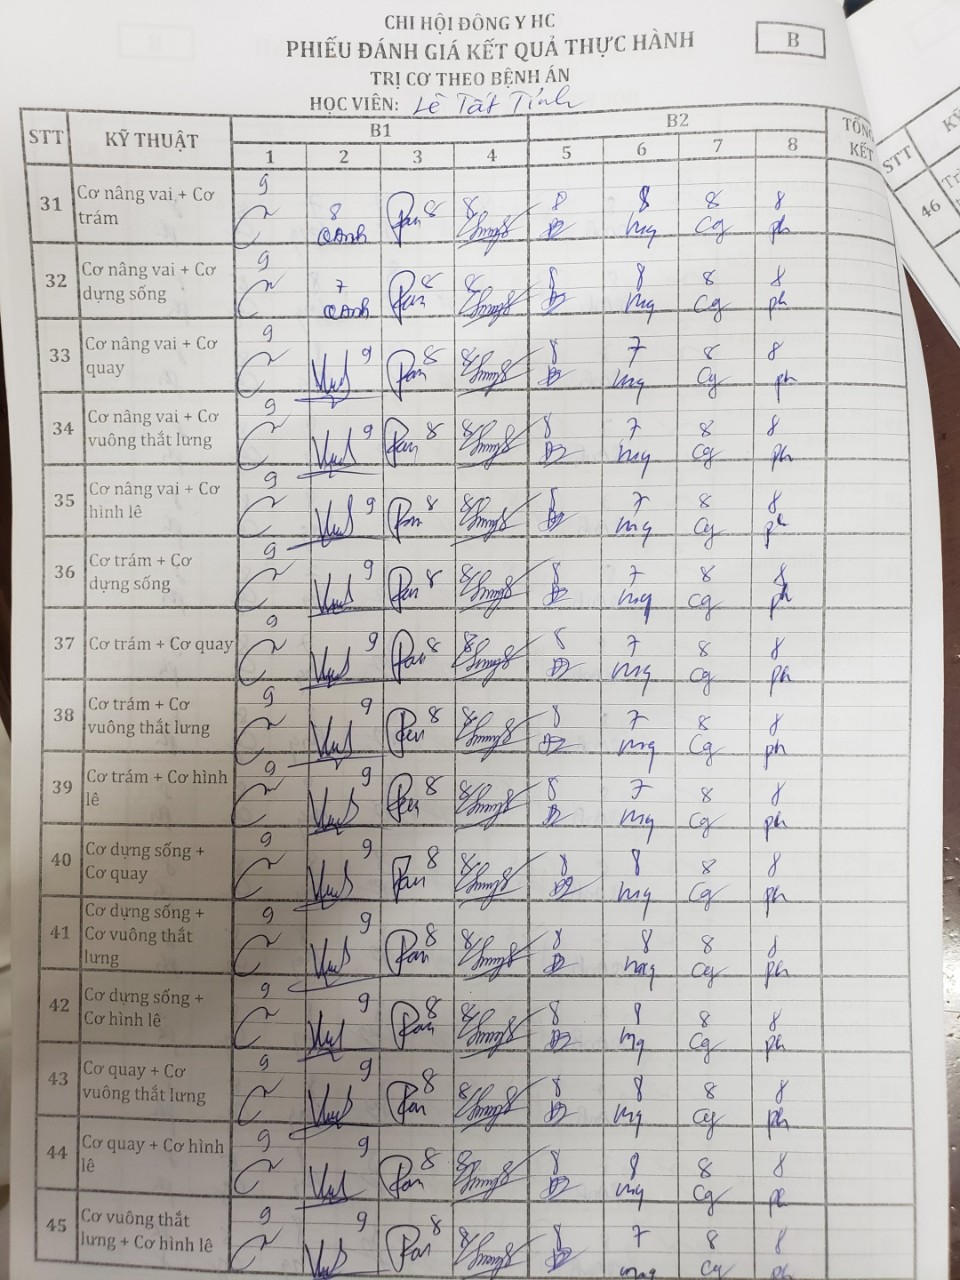 CHI HỘI ĐÔNG Y HC
PHIẾU ĐÁNH GIÁ KẾT QUẢ THỰC HÀNH
B
TRỊ CƠ THEO BỆNH ÁN
HỌC VIÊN: Lê Tất Tỉnh
STT KỸ THUẬT B1 B2 TỔNG KẾT
1 2 3 4 5 6 7 8
31 Cơ nâng vai + Cơ trám 9 8 QAnh 8 8 8 8 mq 8 Cg 8 ph
32 Cơ nâng vai + Cơ dựng sống 9 7 QAnh 8 8 8 8 mq 8 Cg 8 ph
33 Cơ nâng vai + Cơ quay 9 9 8 8 8 7 mq 8 Cg 8 ph
34 Cơ nâng vai + Cơ vuông thắt lưng 9 9 8 8 8 7 mq 8 Cg 8 ph
35 Cơ nâng vai + Cơ hình lê 9 9 8 8 8 7 mq 8 Cg 8 ph
36 Cơ trám + Cơ dựng sống 9 9 8 8 8 7 mq 8 Cg 8 ph
37 Cơ trám + Cơ quay 9 9 8 8 8 7 mq 8 Cg 8 ph
38 Cơ trám + Cơ vuông thắt lưng 9 9 8 8 8 7 mq 8 Cg 8 ph
39 Cơ trám + Cơ hình lê 9 9 8 8 8 7 mq 8 Cg 8 ph
40 Cơ dựng sống + Cơ quay 9 9 8 8 8 8 mq 8 Cg 8 ph
41 Cơ dựng sống + Cơ vuông thắt lưng 9 9 8 8 8 8 mq 8 Cg 8 ph
42 Cơ dựng sống + Cơ hình lê 9 9 8 8 8 8 mq 8 Cg 8 ph
43 Cơ quay + Cơ vuông thắt lưng 9 9 8 8 8 8 mq 8 Cg 8 ph
44 Cơ quay + Cơ hình lê 9 9 8 8 8 8 mq 8 Cg 8 ph
45 Cơ vuông thắt lưng + Cơ hình lê 9 9 8 8 8 7 mq 8 Cg 8 ph
STT
46